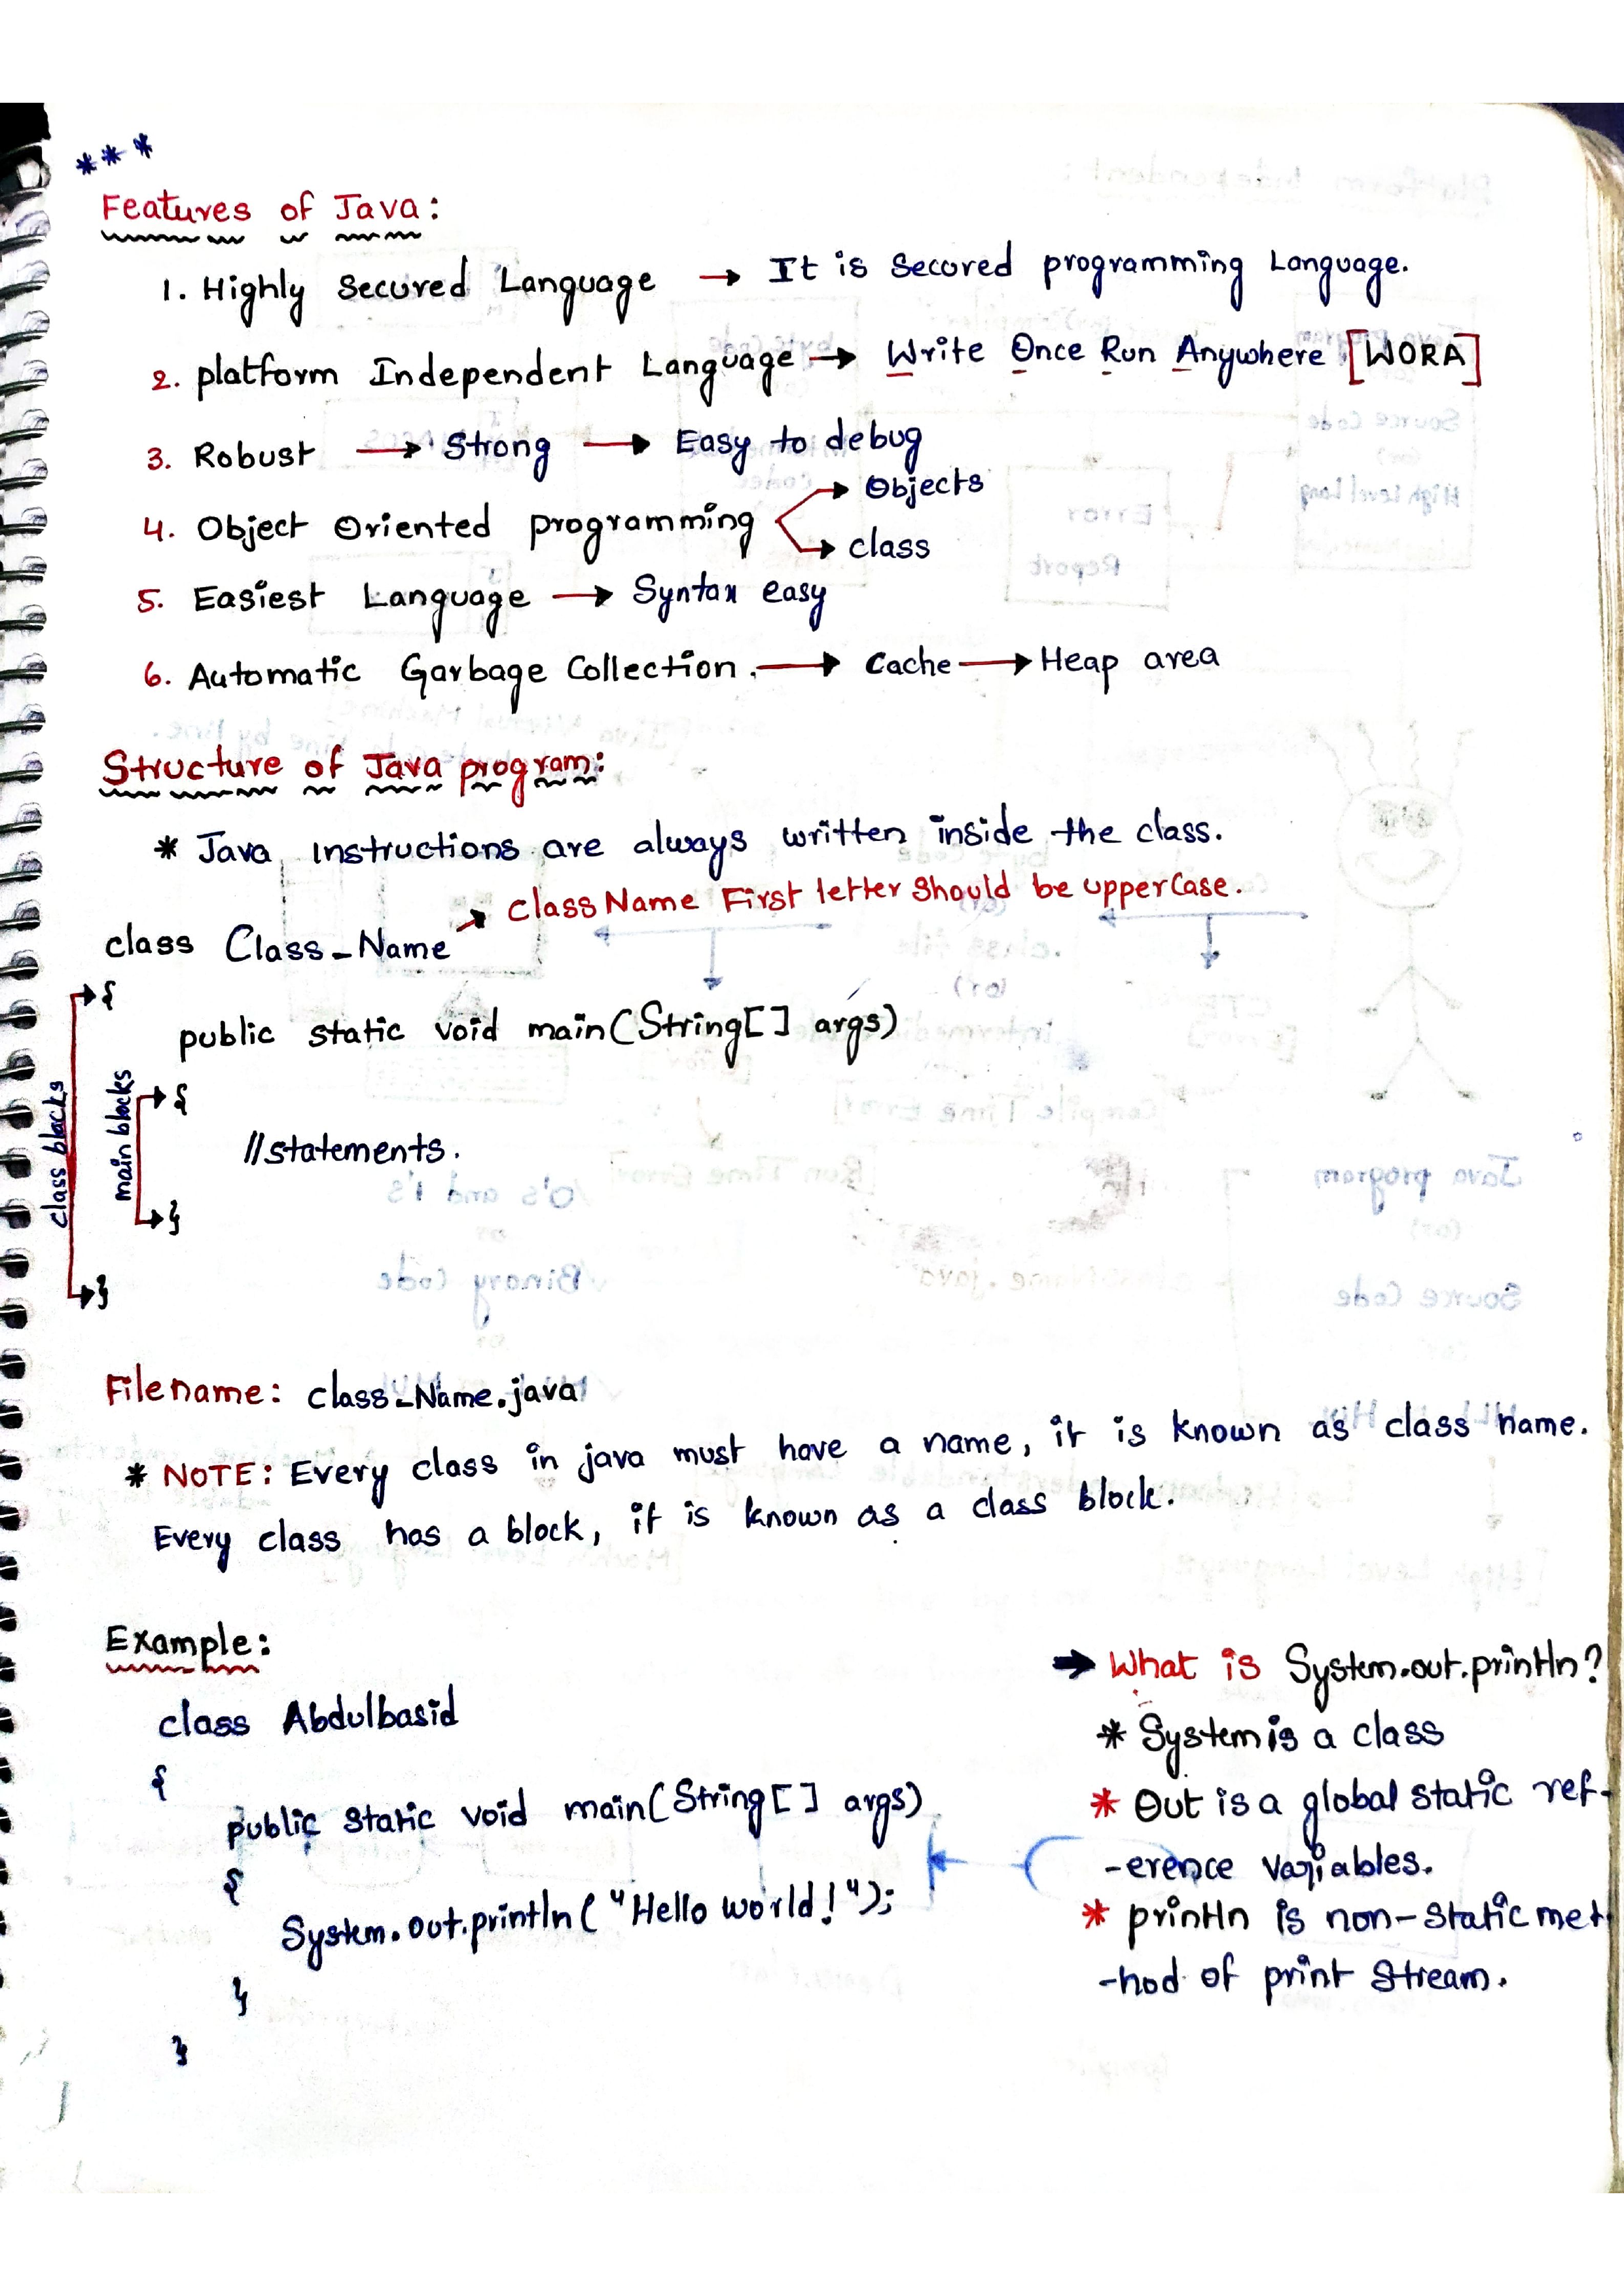 ***
Features of Java:
1. Highly Secured Language → It is Secored programming Language.
2. platform Independent Language → Write Once Run Anywhere [WORA]
3. Robust → Strong → Easy to debug
4. Object Oriented programming → Objects
→ class
5. Easiest Language → Syntax easy
6. Automatic Garbage Collection. → Cache → Heap area
Structure of Java program:
* Java instructions are always written inside the class.
→ class Name First letter Should be upperCase.
class Class_Name
{
public static void main(String[] args)
{
//statements.
}
}
class blocks
main blocks
Filename: class_Name.java
* NOTE: Every class in java must have a name, it is known as class name.
Every class has a block, it is known as a class block.
Example:
class Abdulbasid
{
public static void main(String[] args)
{
System.out.println("Hello world!");
}
}
→ What is System.out.println?
* System is a class
* Out is a global static ref-
-erence variables.
* println is non-static met
-hod of print Stream.